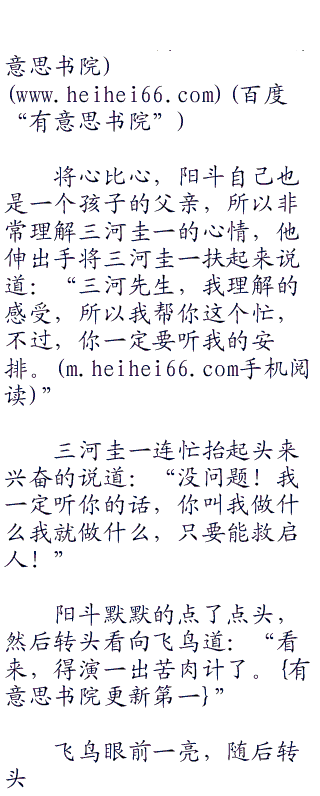 意思书院)
(www.heihei66.com)(百度
“有意思书院”)
将心比心，阳斗自己也
是一个孩子的父亲，所以非
常理解三河圭一的心情，他
伸出手将三河圭一扶起来说
道：“三河先生，我理解的
感受，所以我帮你这个忙，
不过，你一定要听我的安
排。(m.heihei66.com手机阅
读)”
三河圭一连忙抬起头来
兴奋的说道：“没问题！我
一定听你的话，你叫我做什
么我就做什么，只要能救启
人！”
阳斗默默的点了点头，
然后转头看向飞鸟道：“看
来，得演一出苦肉计了。{有
意思书院更新第一}”
飞鸟眼前一亮，随后转
头